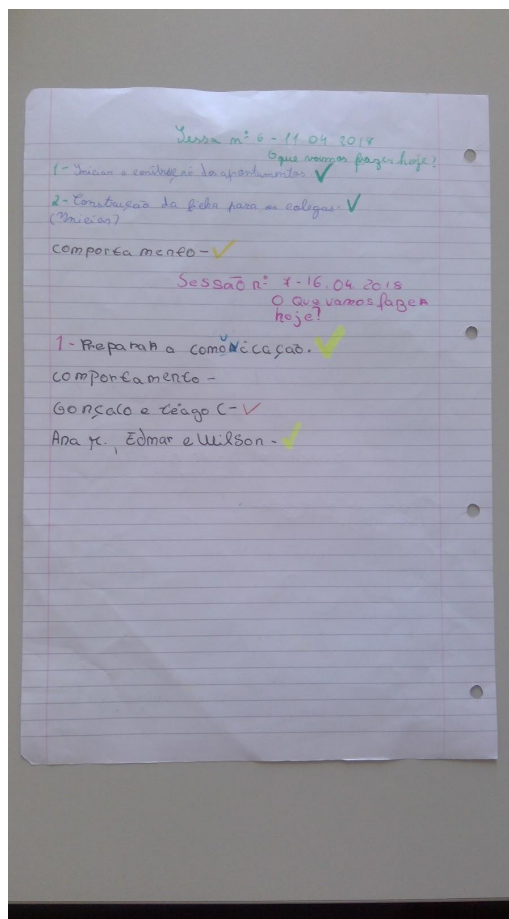 Sessa nº 6 - 11.04.2018
O que vamos fazer hoje!
1 - Iniciar a construção dos apontamentos ✓
2 - Construção da ficha para os colegas. ✓
(Iniciar)
comportamento - ✓
Sessão nº 7 - 16.04.2018
O que vamos fazer
hoje?
1 - Preparar a comunicação. ✓
comportamento -
Gonçalo e Tiago C - ✓
Ana M., Edmar e Wilson - ✓